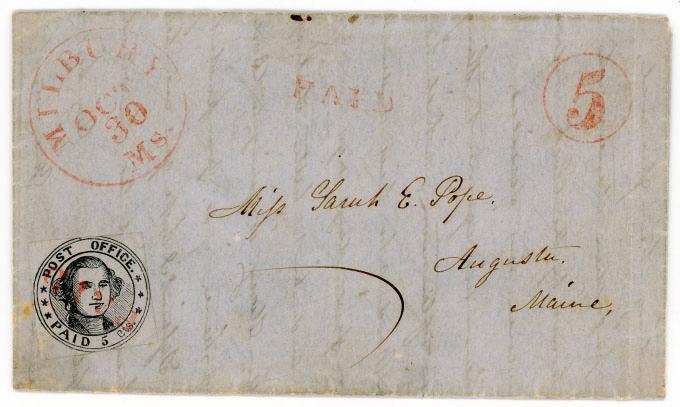 MILBURY
OCT
30
Ms.
PAID
5
Miss Sarah E. Pope.
Augusta.
Maine,
POST OFFICE.
PAID 5 cts.